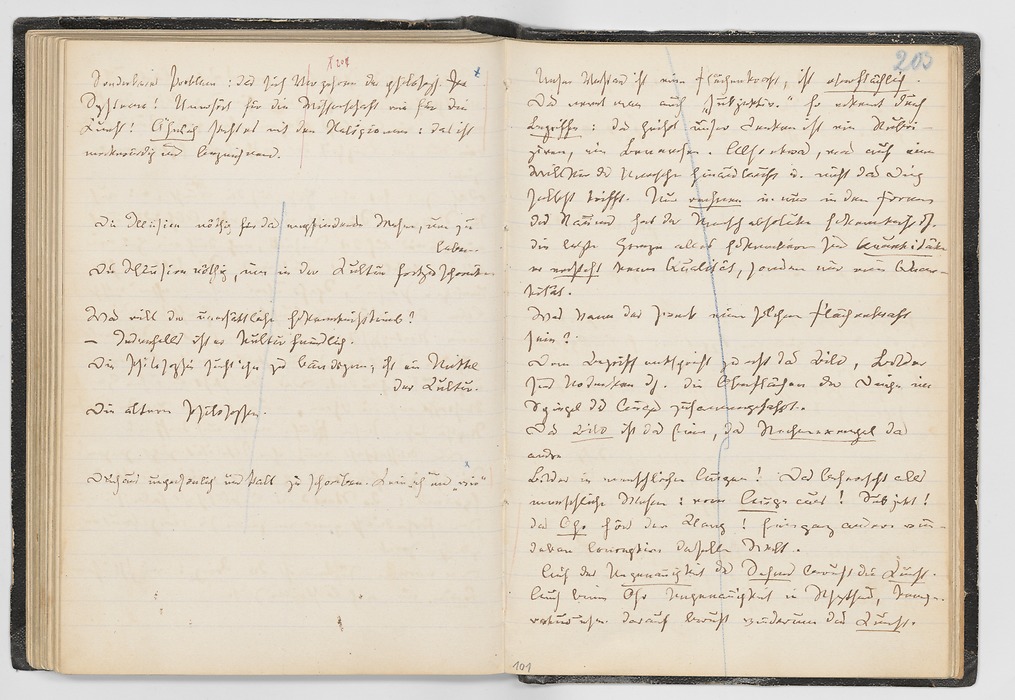 203
Sonderbares Problem: das sich Verzehren der philosoph.
Systeme! Unerhört für die Wissenschaft wie für die
Kunst! Ähnlich steht es mit den Religionen: das ist
merkwürdig und bezeichnend.
Die Illusion nöthig für das empfindende Wesen, um zu
leben.
Die Illusion nöthig, um in der Kultur fortzuschreiten
Was will der unersättliche Erkenntnißtrieb?
— Jedenfalls ist er kulturfeindlich.
Die Philosophie sucht ihn zu bändigen; ist ein Mittel
der Kultur.
Die älteren Philosophen.
Durchaus unpersönlich und kalt zu schreiben. Kein ich und „wir"
Unser Verstand ist eine Flächenkraft, ist oberflächlich.
Das nennt man auch „subjektiv." Er erkennt durch
Begriffe: das heißt unser Denken ist ein Rubri-
ziren, ein Benamsen. Also etwas, was auf eine
Willkür des Menschen hinausläuft u. nicht das Ding
selbst trifft. Nur rechnend u. nur in den Formen
des Raumes hat der Mensch absolute Erkenntniß dh.
die letzte Grenze alles Erkennbaren sind Quantitäten
er versteht keine Qualität, sondern nur eine Quan-
tität.
Was kann der Zweck einer solchen Flächenkraft
sein?
Dem Begriff entspricht zu erst das Bild, Bilder
sind Urdenken dh. die Oberflächen der Dinge im
Spiegel des Auges zusammengefaßt.
Das Bild ist das eine, das Rechenexempel das
andre
Bilder in menschlichen Augen! Das beherrscht alles
menschliche Wesen: vom Auge aus! Subjekt!
das Ohr hört den Klang! Eine ganz andere wun-
derbare Conception derselben Welt.
Auf der Ungenauigkeit des Sehens beruht die Kunst.
Auch beim Ohr Ungenauigkeit in Rhythmus, Tempe-
ratur usw. darauf beruht wiederum die Kunst.
101